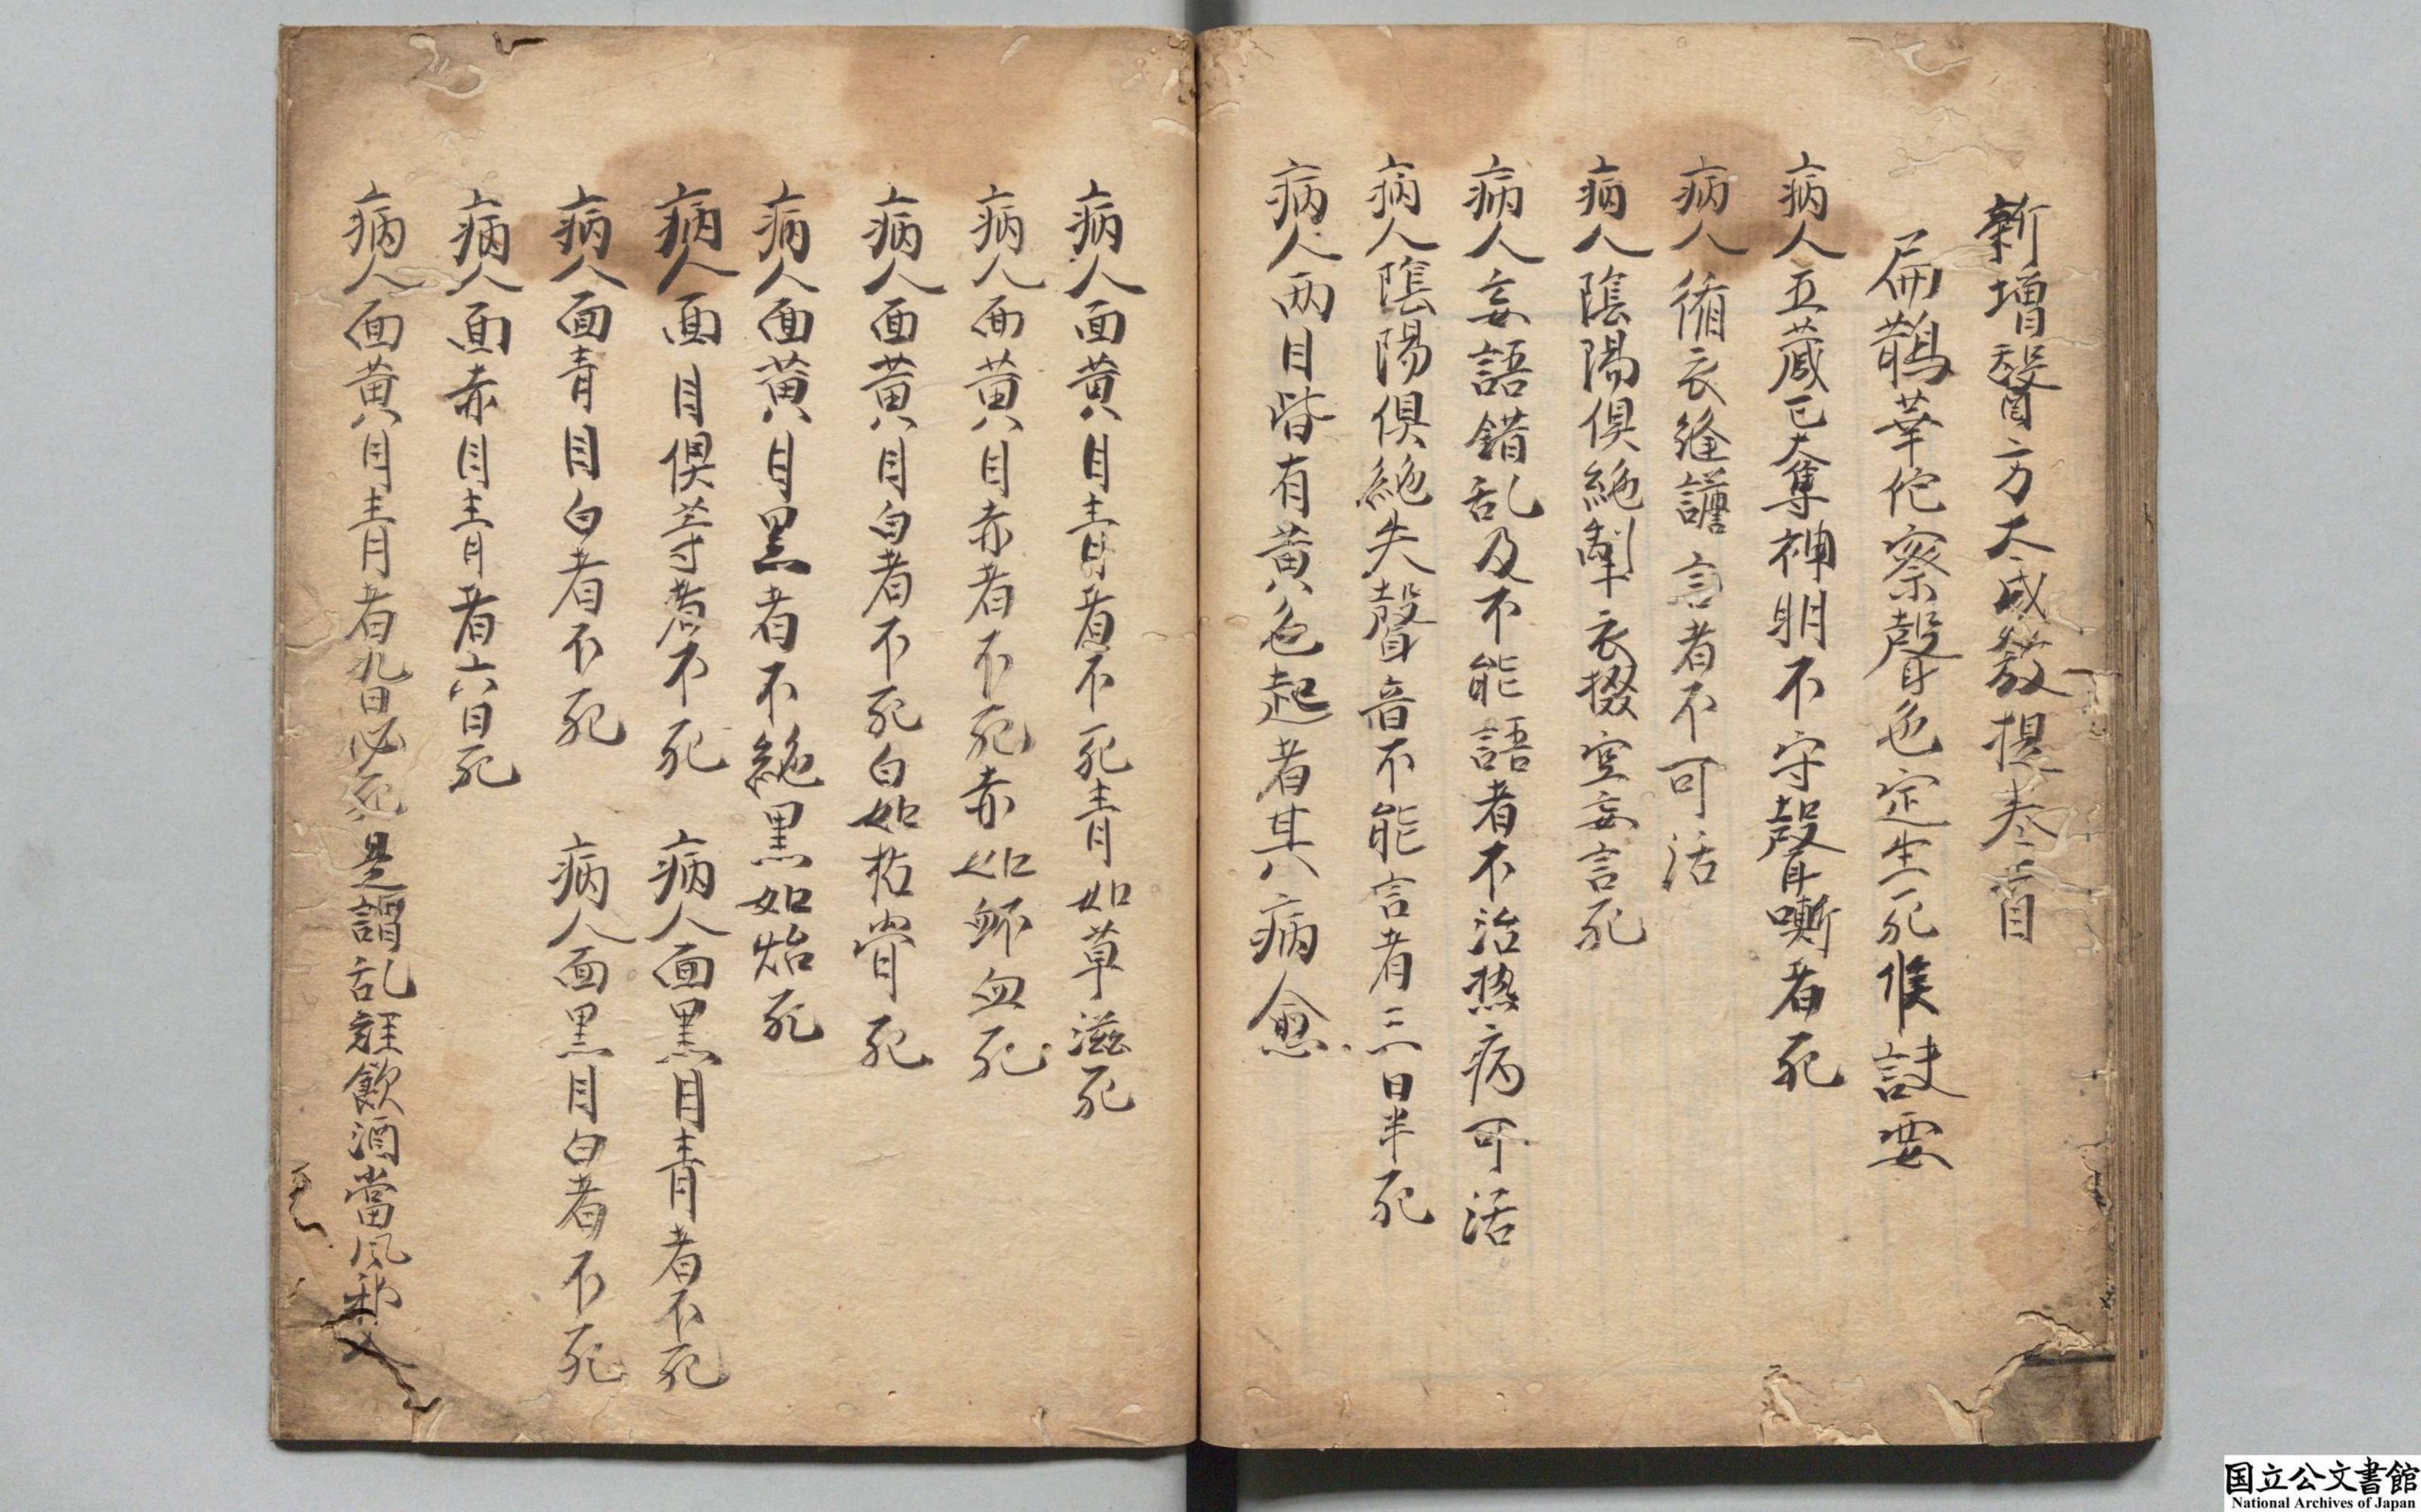 新增醫方大成發揮卷首
扁鵲華佗察聲色定生死候訣要
病人五藏已奪神明不守聲嘶者死
病人循衣縫譫言者不可活
病人陰陽俱絶掣衣掇空妄言死
病人妄語錯乱及不能語者不治熱病可活
病人陰陽俱絶失聲音不能言者三日半死
病人兩目眥有黄色起者其病愈
病人面黄目青者不死青如草滋死
病人面黄目赤者不死赤如衃血死
病人面黄目白者不死白如枯骨死
病人面黄目黒者不絶黒如炲死
病人面目俱等者不死 病人面黒目青者不死
病人面青目白者不死 病人面黒目白者不死
病人面赤目青者六日死
病人面黄目青者九日必死是謂乱經飲酒當風邪
国立公文書館
National Archives of Japan